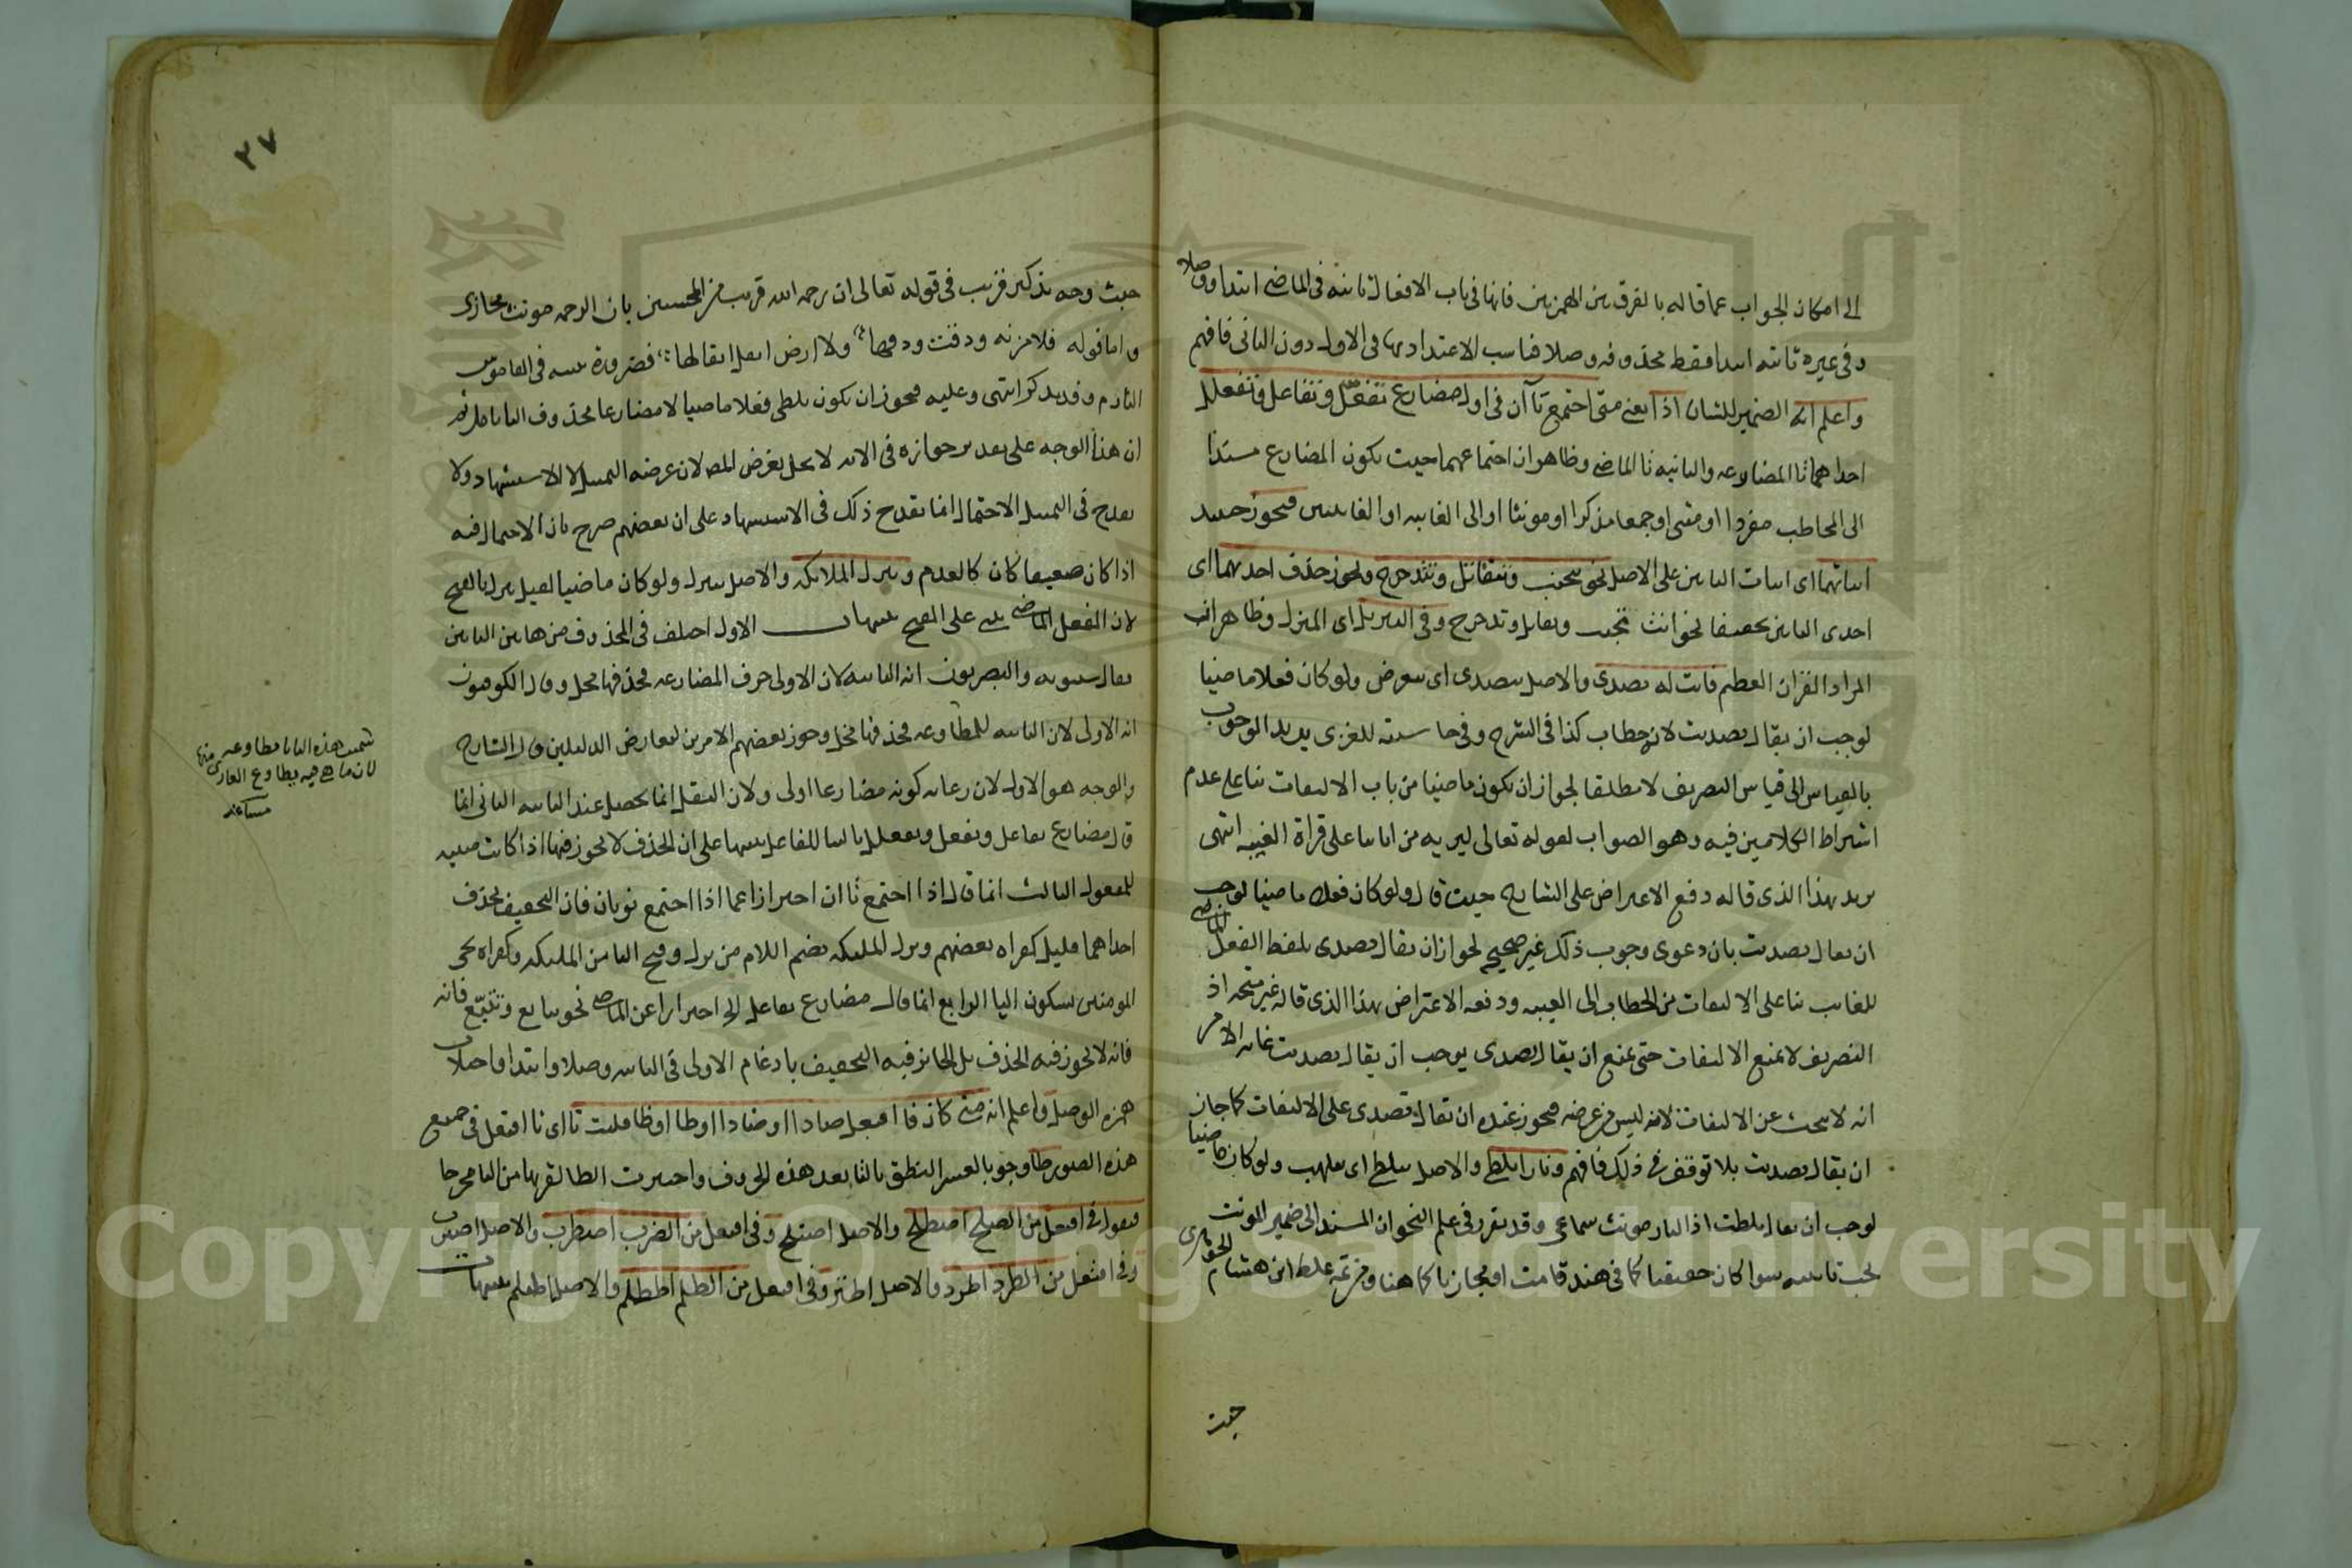 الى امكان الجواب عما قاله بالفرق بين الهمزتين فانها فى باب الافعال ثابتة فى الماضى ابتدا ووصلا
وفى غيره ثابتة ابتدا فقط محذوفه وصلا فناسب الاعتداد بها فى الاول دون الثانى فافهم
واعلم انه الضمير للشان اذا يعنى متى اجتمع تاآن فى اول مضارع تفعّل وتفاعل وتفعلل
احداهما تا المضارعه والثانيه تا الماضى وظاهر ان اجتماعهما حيث يكون المضارع مسندا
الى المخاطب مفردا او مثنى او جمعا مذكرا او مونثا او الى الغايبه او الغايبتين فيجوز حينيد
اثباتهما اى اثبات التاين على الاصل نحو تتجنب وتتقاتل وتتدحرج ويجوز حذف احدهما اى
احدى التاين تخفيفا نحو انت تجنب وتقاتل وتدحرج وفى التنزيل اى المنزل وظاهر ان
المراد القران العظيم فانت له تصدى والاصل تتصدى اى تتعرض ولو كان فعلا ماضيا
لوجب ان يقال تصديت لانه خطاب كذا فى الشرح وفى حاشيته للغزى يريد الوجوب
بالقياس الى قياس التصريف لا مطلقا لجواز ان يكون ماضيا من باب الالتفات بنا على عدم
اشتراط الكلامين فيه وهو الصواب لقوله تعالى ليريه من اياتنا على قراة الغيبه انتهى
يريد بهذا الذى قاله دفع الاعتراض على الشارح حيث قال ولو كان فعلا ماضيا لوجب
ان يقال تصديت بان دعوى وجوب ذلك غير صحيح لجواز ان يقال تصدى بلفظ الفعل الماضى
للغايب بنا على الالتفات من الخطاب الى الغيبه ودفعه الاعتراض بهذا الذى قاله غير متجه اذ
التصريف لا يمنع الالتفات حتى يمنع ان يقال تصدى يوجب ان يقال تصديت غاية الامر
انه لا يبحث عن الالتفات لانه ليس من غرضه فيجوز عنده ان يقال تصدى على الالتفات كما جاز
ان يقال تصديت بلا توقف فى ذلك فافهم ونارا تلظى والاصل تتلظى اى تتلهب ولو كان ماضيا
لوجب ان يقال تلظت اذ النار مونث سماعى وقد تقرر فى علم النحو ان المسند الى ضمير المونث
يجب تانيثه سوا كان حقيقيا كما فى هند قامت او مجازيا كما هنا ومن ثمة غلط ابن هشام
حيث
٣٧
حيث وجه تذكير قريب فى قوله تعالى ان رحمة الله قريب من المحسنين بان الرحمه مونث مجازى
واما قوله فلا مزنة ودقت ودقها ولا ارض ابقل ابقالها فضرورة
وقد يذكر انتهى وعليه فيجوز ان يكون تلظى فعلا ماضيا لا مضارعا محذوف التا
ان هذا الوجه على تقدير جوازه فى الايه لا يخل بغرض المص لان غرضه التمثيل لا الاستشهاد ولا
يقدح فى التمثيل الاحتمال انما يقدح ذلك فى الاستشهاد على ان بعضهم صرح بان الاحتمال فيه
اذا كان ضعيفا كان كالعدم وتنزل الملايكه والاصل تتنزل ولو كان ماضيا لقيل تنزل بالفتح
لان الفعل الماضى بنى على الفتح تنبيهات الاول اختلف فى المحذوف من هاتين التاين
فقال سيبويه والبصريون انه الثانيه لان الاولى حرف المضارعه فحذفها مخل وقال الكوفيون
انه الاولى لان الثانيه للمطاوعه فحذفها مخل وجوز بعضهم الامرين لتعارض الدليلين قال الشارح
والوجه هو الاول لان رعاية كونه مضارعا اولى ولان الثقل انما يحصل عند الثانيه الثانى انما
قال مضارع تفاعل وتفعل وتفعلل بالبنا للفاعل تنبيها على ان الحذف لا يجوز فيها اذا كانت مبنيه
للمفعول الثالث انما قال اذا اجتمع تاان احترازا عما اذا اجتمع نونان فان التخفيف بحذف
احداهما قليل كقراه بعضهم ونزل المليكه بضم اللام من نزل وفتح التا من المليكه وكقراه نجى
المومنين بسكون اليا الرابع انما قال مضارع تفاعل الخ احترازا عن الماضى نحو تتابع وتتبّع فانه
فانه لا يجوز فيه الحذف بل الجايز فيه التخفيف بادغام الاولى فى الثانيه وصلا وابتدا واجتلاب
همزه الوصل واعلم انه متى كان فا افتعل صادا او ضادا او طا او ظا قلبت تا اى تا افتعل فى جميع
هذه الصور طا وجوبا لعسر النطق بالتا بعد هذه الحروف واختيرت الطا لقربها من التا مخرجا
فتقول فى افتعل من الصلح اصطلح والاصل اصتلح وفى افتعل من الضرب اضطرب والاصل اضترب
وفى افتعل من الطرد اطرد والاصل اطترد وفى افتعل من الظلم اظطلم والاصل اظتلم تنبيهات
سميت هذه التا تا مطاوعه
لان ما هى فيه يطاوع
Copyright © King Saud University